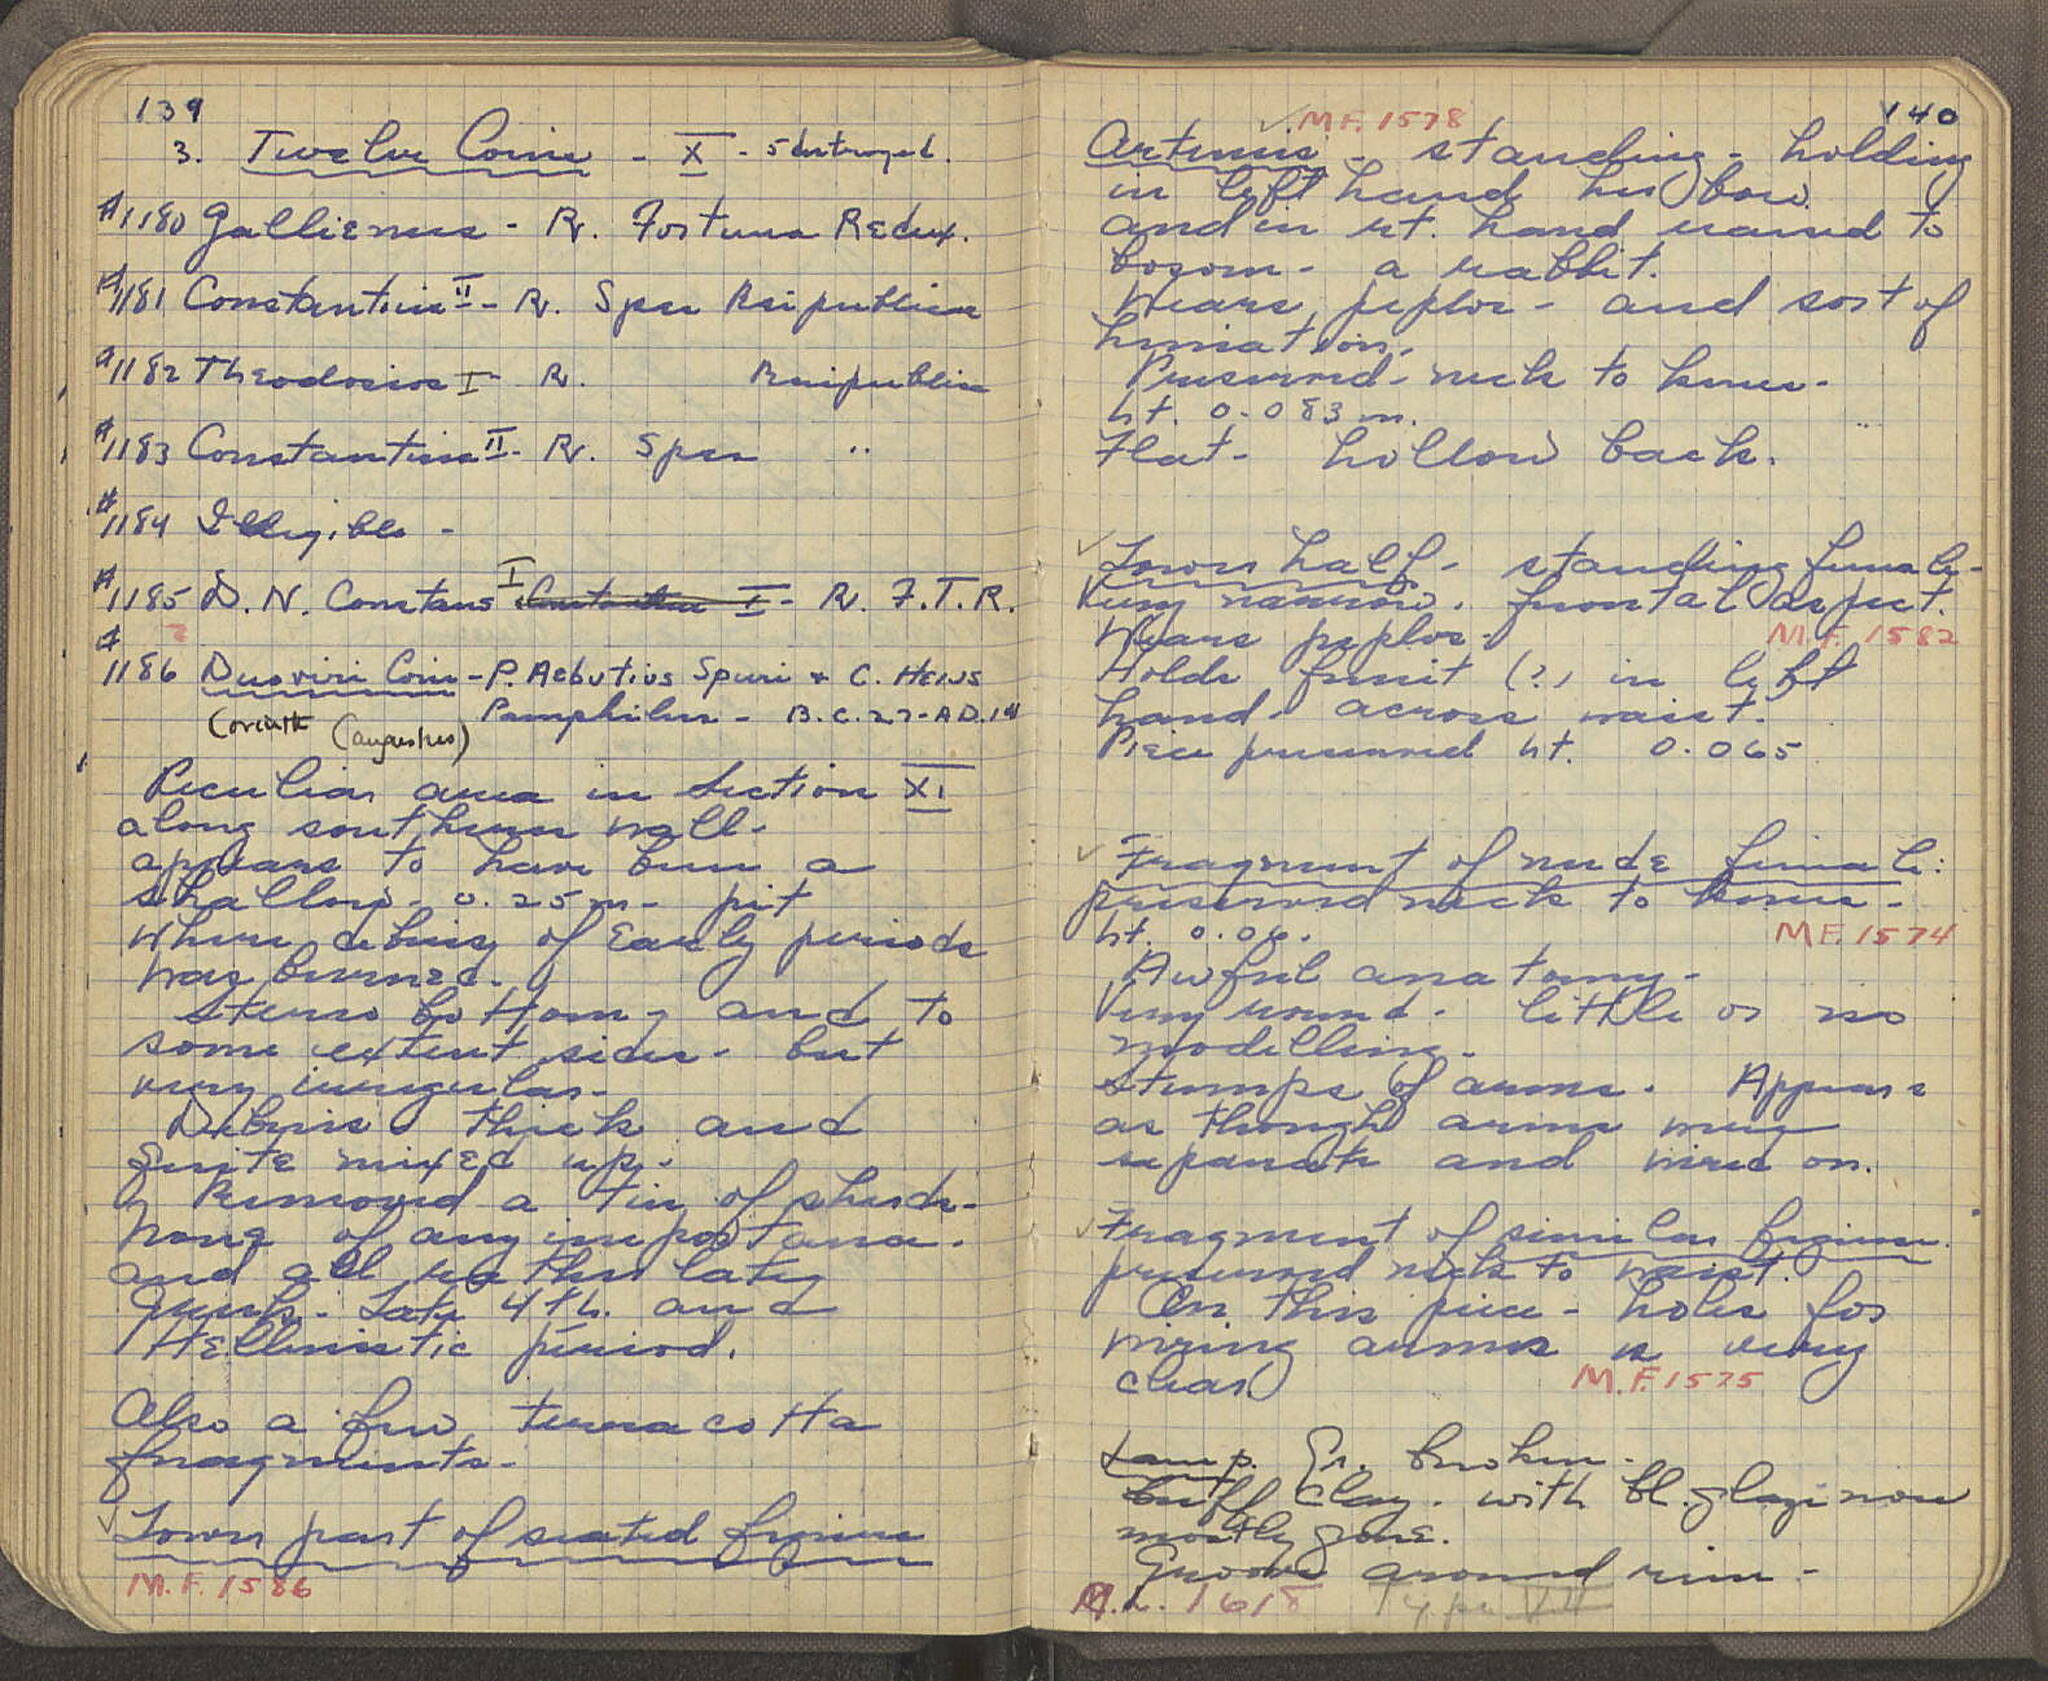 139
3. Twelve Coins - X - 5 destroyed.
#1180 Gallienus - Rv. Fortuna Redux.
#1181 Constantius II - Rv. Spes Reipublicae
#1182 Theodosios I - Rv. Reipublicae
#1183 Constantius II - Rv. Spes "
#1184 Illegible -
#1185 D. N. Constans I Constantine I - Rv. F.T.R.
?
#1186 Duoviri Coin - P. Aebutius Spuri + C. Heius
Pamphilus - B.C. 27-A.D. 14
Corinth (Augustus)
Peculiar area in Section XI
along southern wall -
appears to have been a
shallow - 0.25 m - pit
where debris of Early periods
was burned.
Stereo bottom - and to
some extent sides - but
very irregular -
Debris thick and
quite mixed up.
Removed a tin of sherds -
none of any importance.
and all rather late
junk - Late 4th. and
Hellenistic period.
Also a few terracotta
fragments -
Lower part of seated figure
M.F. 1586
140
M.F. 1578
Artemis - standing - holding
in left hand her bow
and in rt. hand raised to
bosom - a rabbit.
Wears peplos - and sort of
himation.
Preserved - neck to knees -
ht. 0.083 m.
Flat - hollow back.
Lower half - standing female -
Very narrow. frontal aspect.
Wears peplos - M.F. 1582
Holds fruit (?) in left
hand - across waist.
Piece preserved ht. 0.065
Fragment of nude female:
preserved neck to knees -
ht. 0.06. M.F. 1574
Awful anatomy -
Very round - little or no
modelling -
Stumps of arms. Appears
as though arms were
separate and wired on.
Fragment of similar figure.
preserved neck to waist.
On this piece - holes for
wiring arms is very
clear M.F. 1575
Lamp. Gr. broken -
buff clay. with bl. glaze now
mostly gone.
Groove around rim -
L. 1618 Type VII